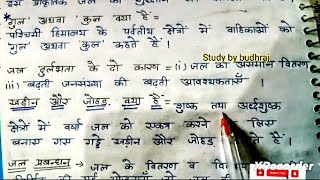 इस प्राकृतिक जल
'गुल' अथवा 'कुल' क्या है =
पश्चिमी हिमालय के पर्वतीय क्षेत्रों में वाहिकाओं को
'गुल' अथवा 'कुल' कहते हैं।
Study by budhraj
जल दुर्लभता के दो कारण = (i) जल का असमान वितरण
(ii) बढ़ती जनसंख्या की बढ़ती आवश्यकताएँ।
खडीन और जोहड़ क्या है - शुष्क तथा अर्द्धशुष्क
क्षेत्रों में वर्षा जल को एकत्र करने लिए
बनाए गए गड्ढे खडीन और जोहड़ हैं।
जल प्रबन्धन - जल के वितरण व
XRecorder